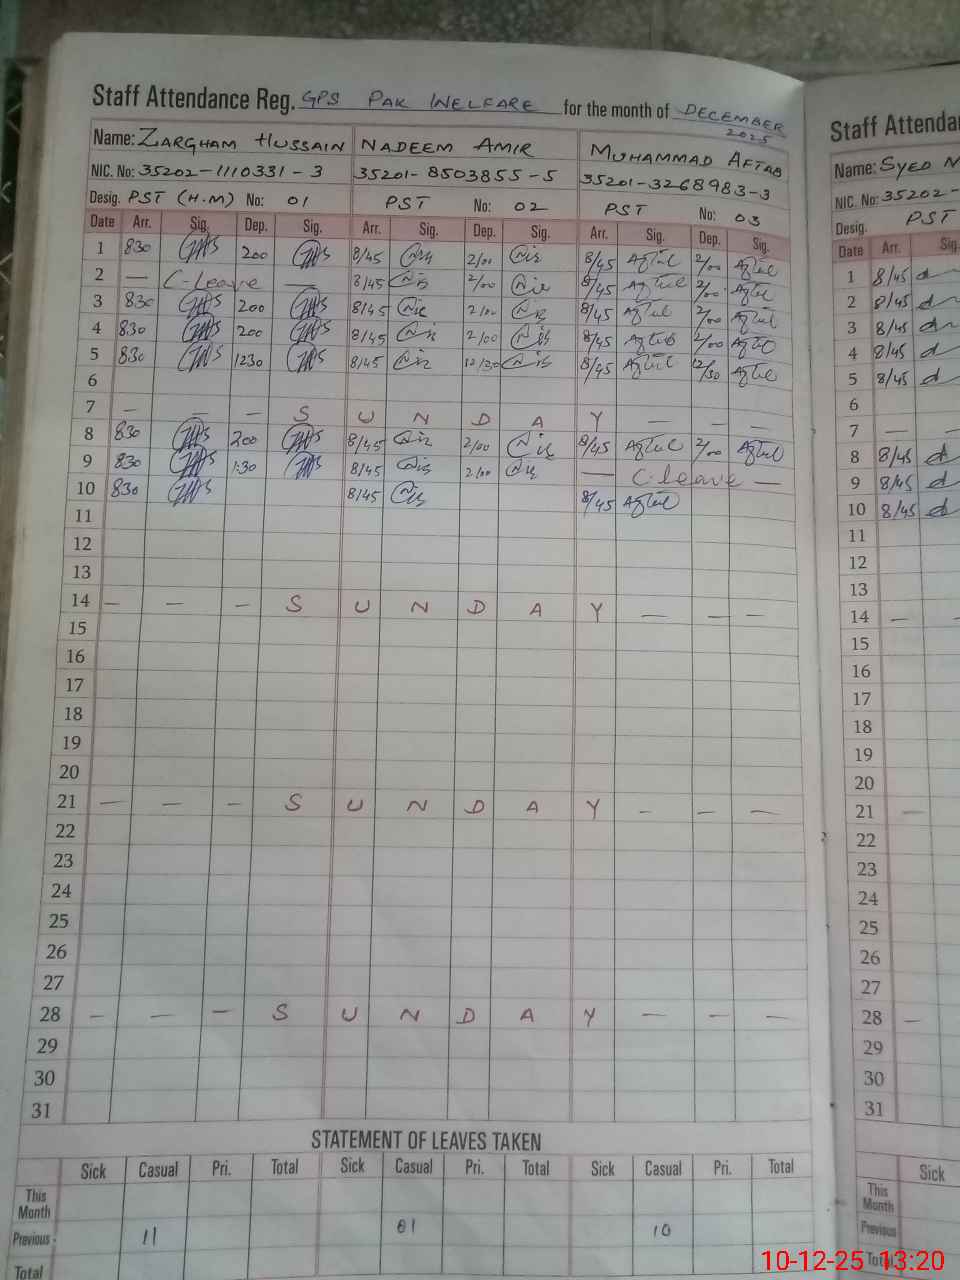 Staff Attendance Reg. GPS PAK WELFARE for the month of DECEMBER 2025
Name: ZARGHAM HUSSAIN NADEEM AMIR MUHAMMAD AFTAB
NIC. No: 35202-1110331-3 35201-8503855-5 35201-3268983-3
Desig. PST (H.M) No: 01 PST No: 02 PST No: 03
Date Arr. Sig. Dep. Sig. Arr. Sig. Dep. Sig. Arr. Sig. Dep. Sig.
1 830 200 8/45 2/00 8/45 Aftab 2/00 Aftab
2 — C-Leave — 8/45 2/00 8/45 Aftab 2/00 Aftab
3 830 200 8/45 2/00 8/45 Aftab 2/00 Aftab
4 830 200 8/45 2/00 8/45 Aftab 2/00 Aftab
5 830 1230 8/45 12/30 8/45 Aftab 12/30 Aftab
6
7 — — — S U N D A Y — — —
8 830 200 8/45 2/00 8/45 Aftab 2/00 Aftab
9 830 1:30 8/45 2/00 — C-leave —
10 830 8/45 8/45 Aftab
11
12
13
14 — — — S U N D A Y — — —
15
16
17
18
19
20
21 — — — S U N D A Y — — —
22
23
24
25
26
27
28 — — — S U N D A Y — — —
29
30
31
STATEMENT OF LEAVES TAKEN
Sick Casual Pri. Total Sick Casual Pri. Total Sick Casual Pri. Total
This Month
Previous 11 01 10
Total
Staff Attenda
Name: SYED
NIC. No: 35202-
Desig. PST
Date Arr. Sig.
1 8/45
2 8/45
3 8/45
4 8/45
5 8/45
6
7 — —
8 8/45
9 8/45
10 8/45
11
12
13
14 —
15
16
17
18
19
20
21 —
22
23
24
25
26
27
28 —
29
30
31
Sick
This Month
Previous
Total
10-12-25 13:20